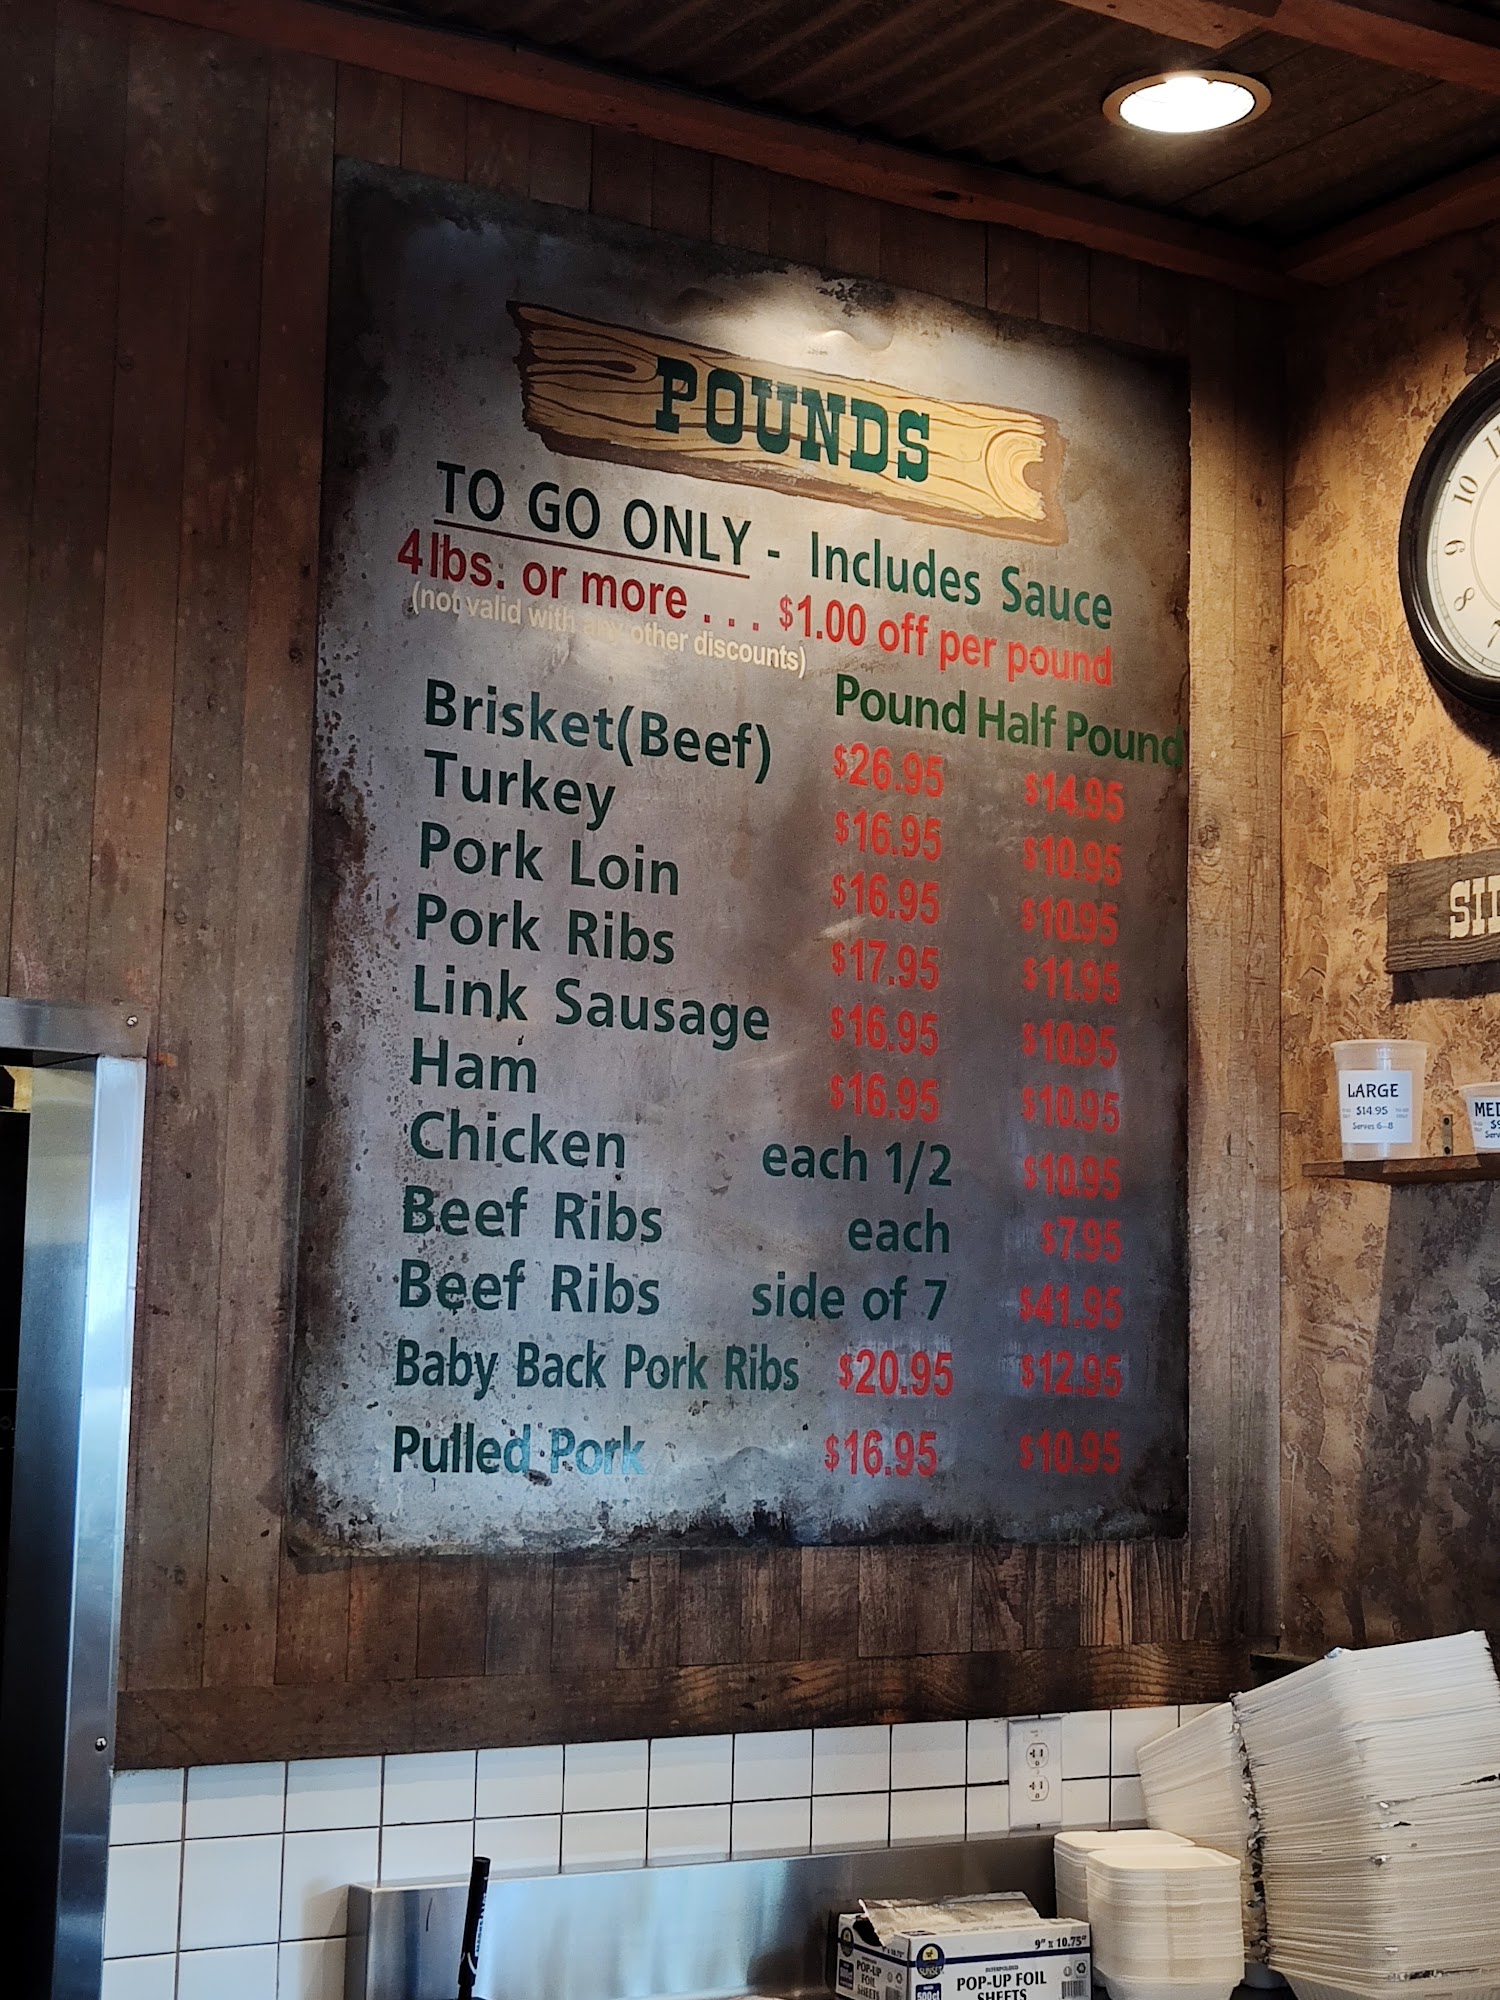 POUNDS
TO GO ONLY - Includes Sauce
4 lbs. or more . . . $1.00 off per pound
(not valid with any other discounts)
Pound Half Pound
Brisket(Beef) $26.95 $14.95
Turkey $16.95 $10.95
Pork Loin $16.95 $10.95
Pork Ribs $17.95 $11.95
Link Sausage $16.95 $10.95
Ham $16.95 $10.95
Chicken each 1/2 $10.95
Beef Ribs each $7.95
Beef Ribs side of 7 $41.95
Baby Back Pork Ribs $20.95 $12.95
Pulled Pork $16.95 $10.95
11
10
9
8
7
LARGE
$14.95
Serves 6-8
9" x 10.75"
POP-UP FOIL
SHEETS
500ct
SUNSET
POP-UP
FOIL
SHEETS